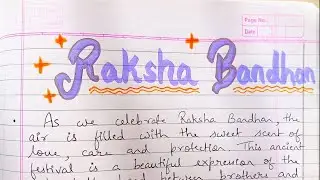 Page No.
Date
Raksha Bandhan
• As we celebrate Raksha Bandhan, the
air is filled with the sweet scent of
love, care and protection. This ancient
festival is a beautiful expression of the
between brothers and